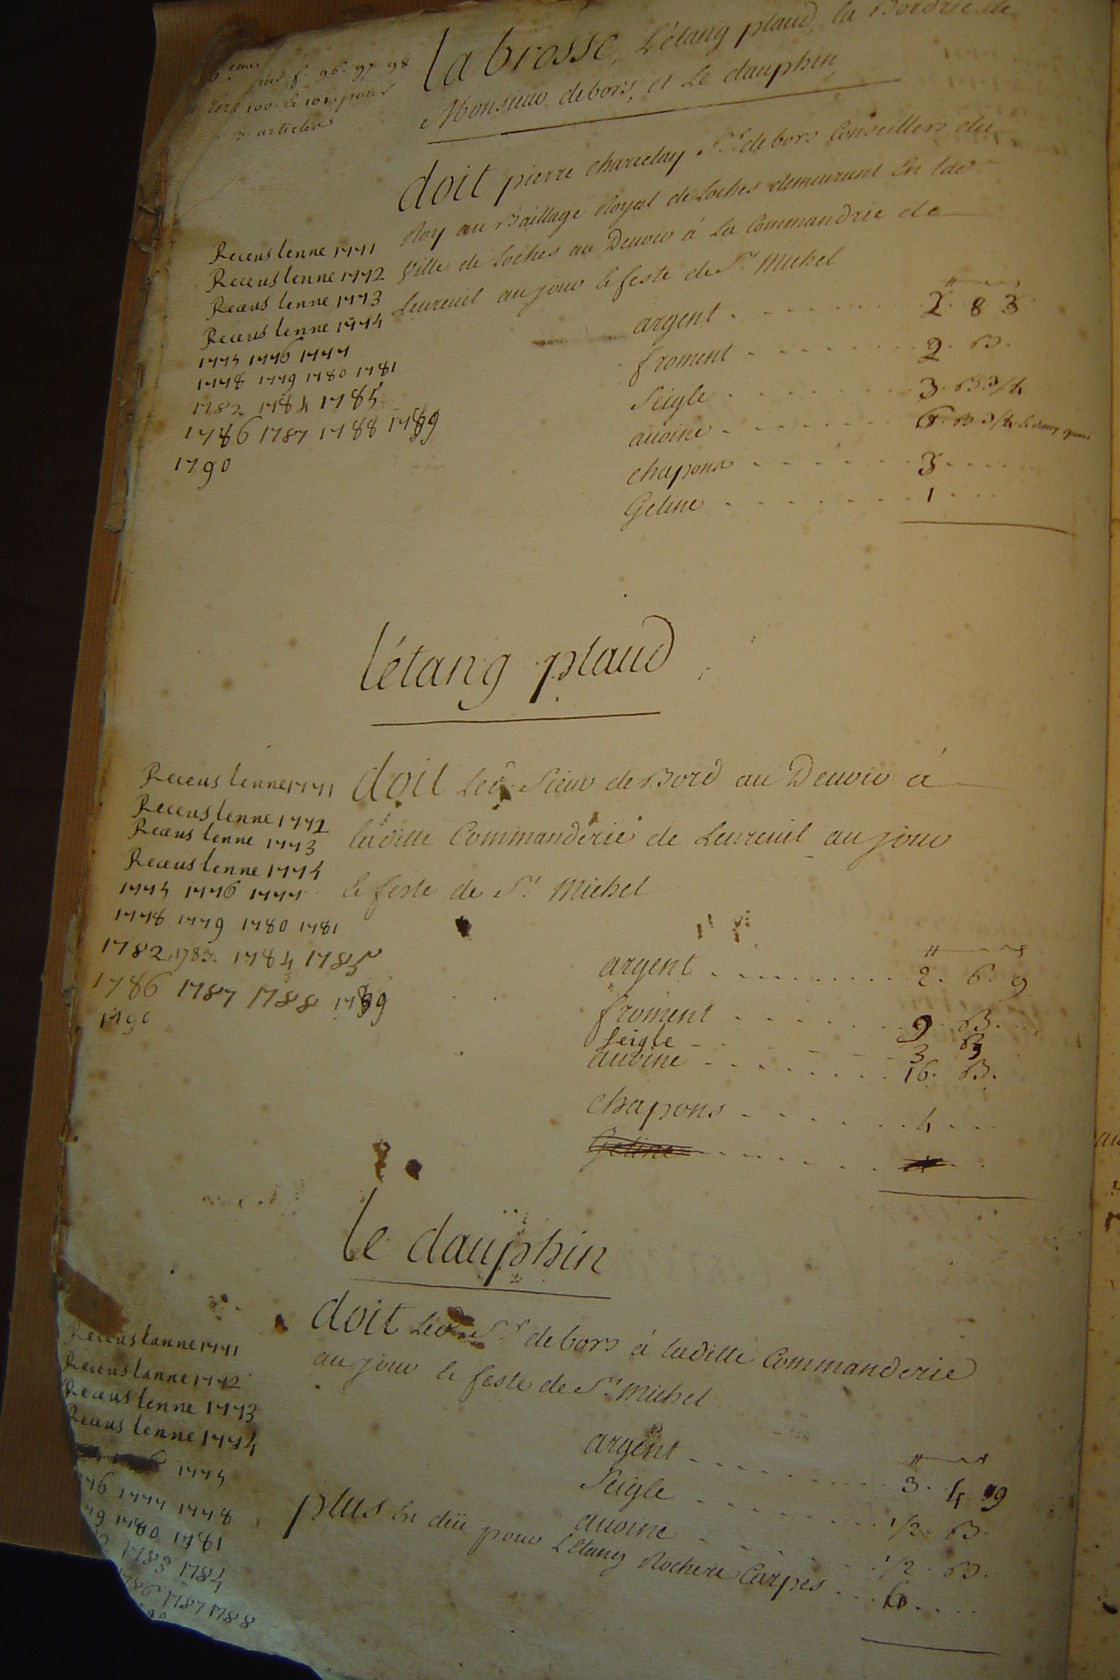 f. 96. 97. 98
100. & 101. pour
3. articles
la brosse, L'étang plaud, la Bordrie de
Monsieur debors, et Le dauphin
doit pierre charcelay Sr. debors Conseillers du
Roy au Baillage Royal de Loches demeurant En lad.
Ville de Loches au Devoir à La Commandrie de
Leureuil au jour & feste de St. Michel
Receus lenne 1771
Receus lenne 1772
Receus lenne 1773
Receus lenne 1774
1775 1776 1777
1778 1779 1780 1781
1782 1784 1785
1786 1787 1788 1789
1790
argent 2. 8 3
froment 2. B.
Seigle 3. B 3/4
auoine 6. B 3/4
chapons 3
Geline 1
l'étang plaud
doit Led. Sieur de Bord au Devoir à
laditte Commanderie de Leureuil au jour
& feste de St. Michel
Receus lenne 1771
Receus lenne 1772
Receus lenne 1773
Receus lenne 1774
1775 1776 1777
1778 1779 1780 1781
1782, 1783. 1784 1785
1786 1787 1788 1789
1790
argent 2. 6. 9
froment 9. B.
seigle 3 B
auoine 16. B.
chapons 4
Geline
le dauphin
doit Led. Sr. debors à laditte Commanderie
au jour & feste de St. Michel
Receus lanne 1771
Receus lanne 1772
Receus lenne 1773
Receus lenne 1774
1775
76 1777 1778
79 1780 1781
1783 1784
86 1787 1788
argent 3. 4 9
Seigle 1/2. B.
auoine 1/2. B.
plus En deü pour L'Etang Rochere Carpes 6